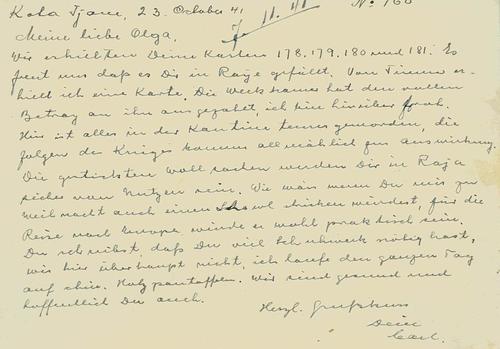 Kota Tjane, 23. October 41 11. 41 No 160
Meine liebe Olga.
Wir erhielten Deine Karten 178, 179, 180 und 181. Es
freut uns daß es Dir in Raja gefällt. Von er-
hielt ich eine Karte. Die hat den vollen
Betrag an ihn ausgezahlt, ich bin hierüber froh.
Hier ist alles in der Kantine teurer geworden, die
folgen des Krieges kommen allmählich zur Auswirkung.
Die gestrickten Wollsachen werden Dir in Raja
sicher von Nutzen sein. Wie wäre wenn Du mir zu
Weihnacht auch einen Schawl schicken würdest, für die
Reise nach Europa würde er wohl praktisch sein.
Du schreibst, daß Du viel Schuhwerk nötig hast,
wir hier überhaupt nicht, ich laufe den ganzen Tag
auf chin. Holzpantoffen. Wir sind gesund und
hoffentlich Du auch.
Herzl. Gruß & Kuss
Dein
Carl.